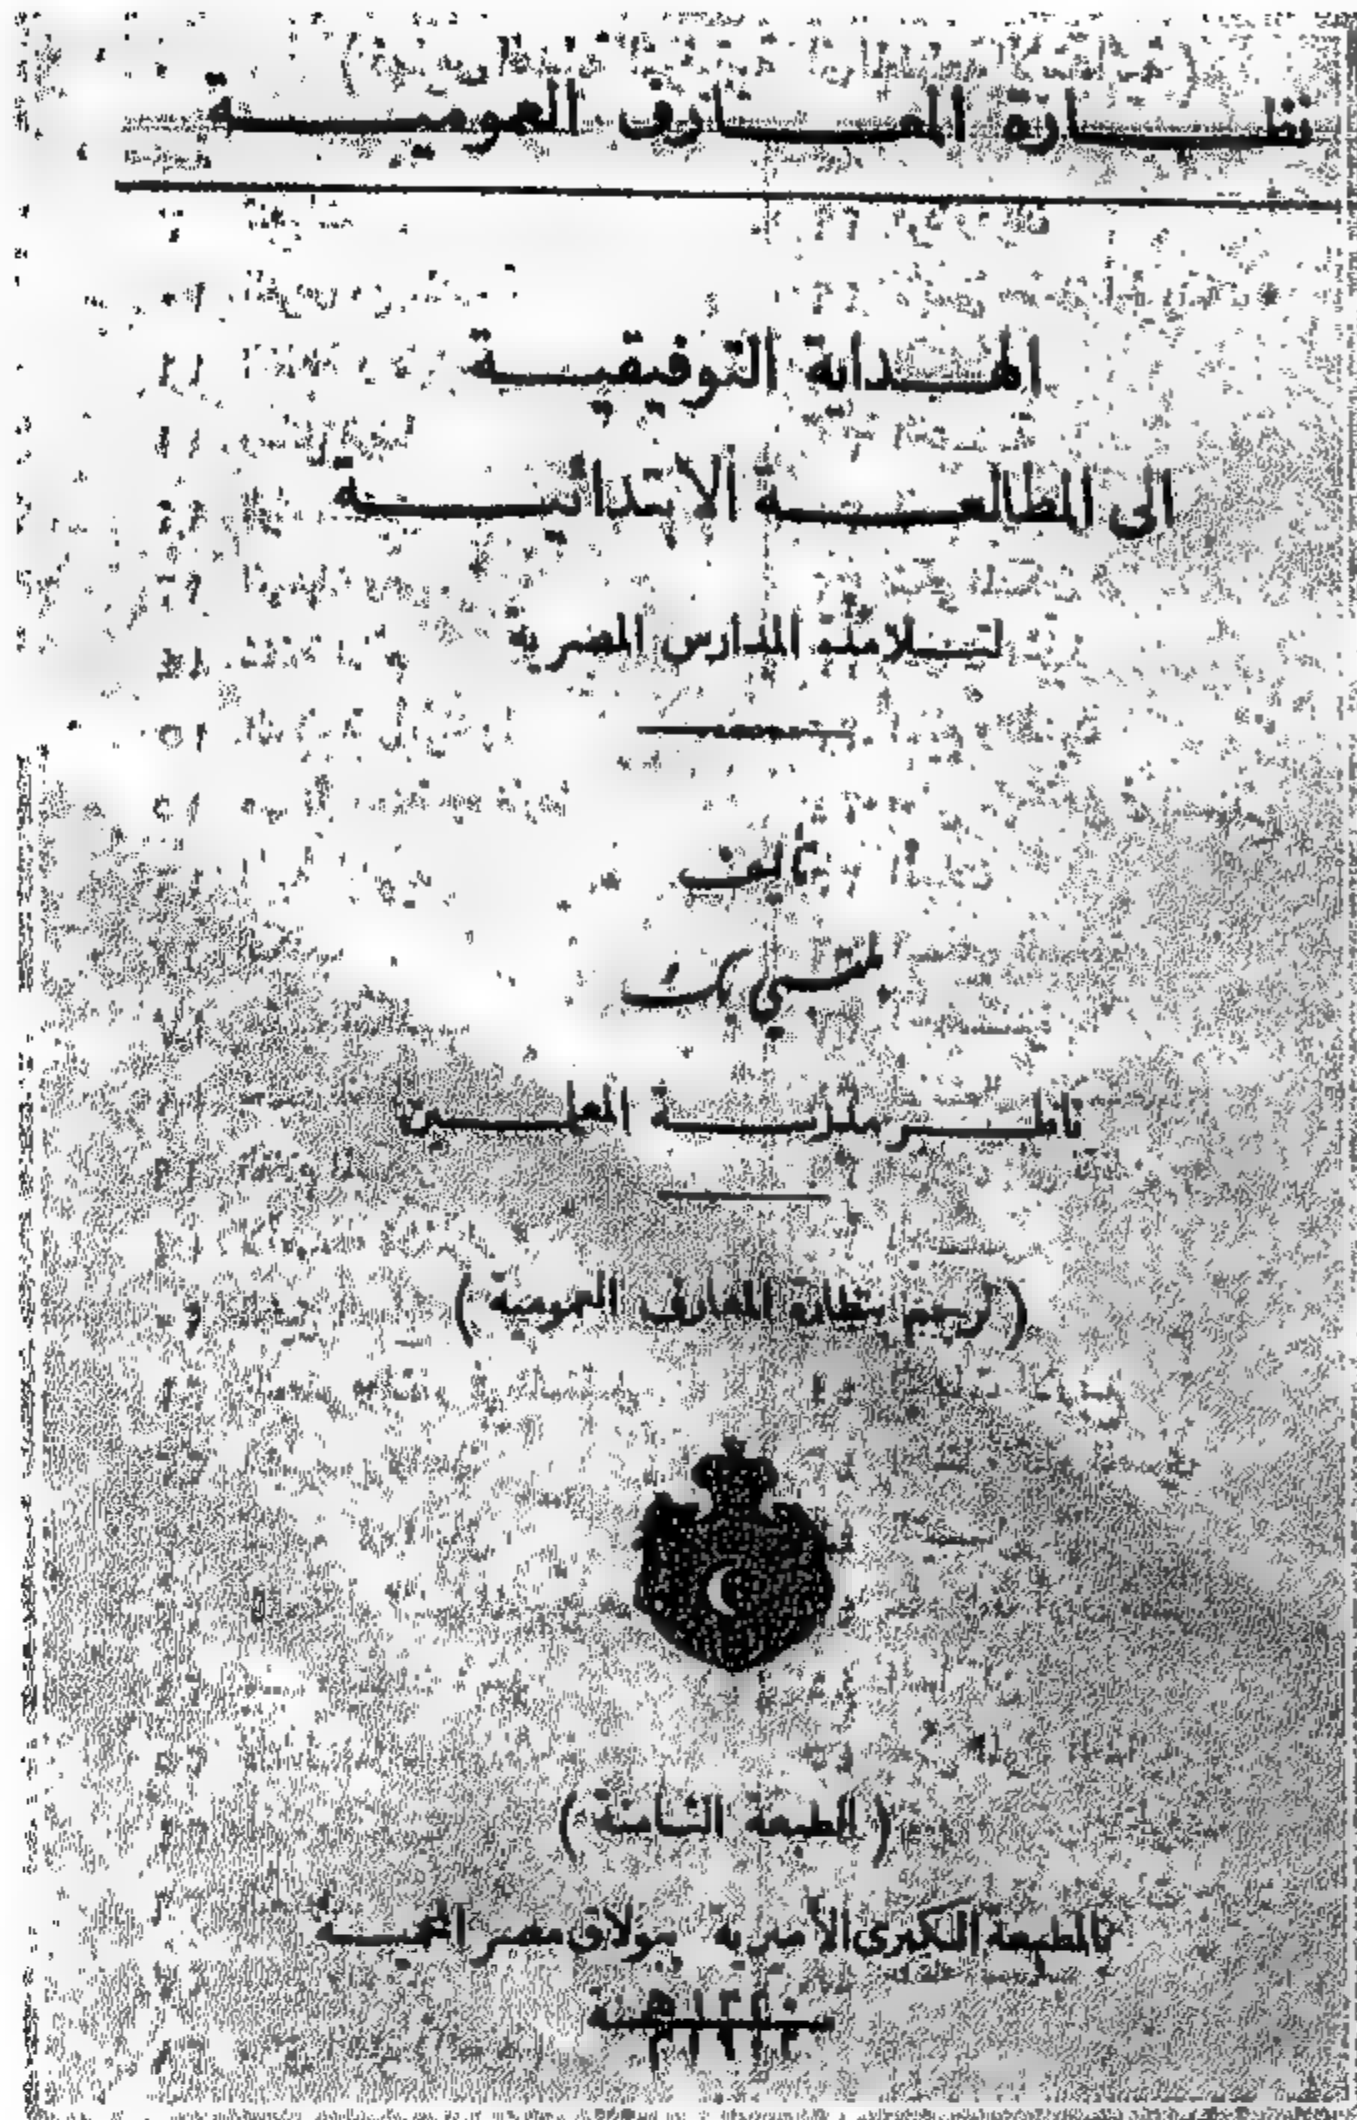 نظارة المعارف العمومية
الهداية التوفيقية
الى المطالعة الابتدائية
لتلامذة المدارس المصرية
تأليف
بلتسي بك
ناظر مدرسة المعلمين
(ترجم بنظارة المعارف العمومية)
(الطبعة الثامنة)
بالمطبعة الكبرى الأميرية ببولاق مصر المحمية
سنة